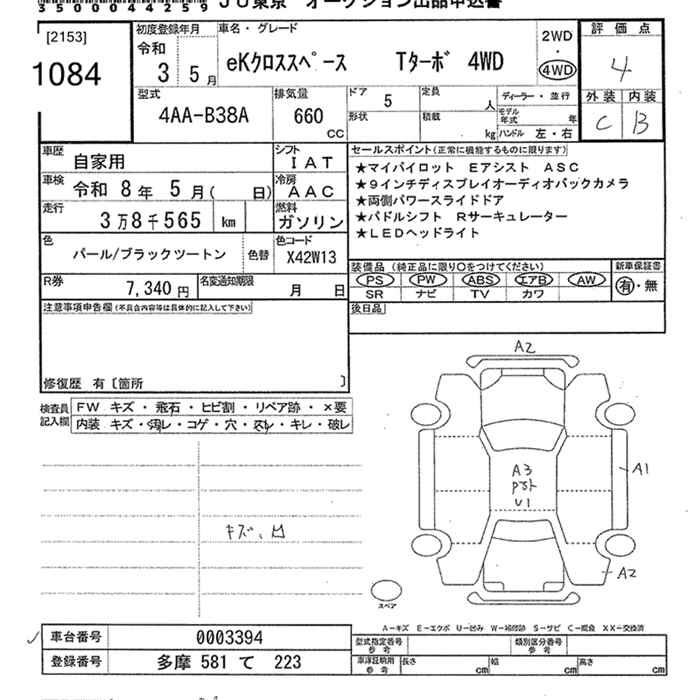 35000442​59 JU東京 オークション出品申込書
[2153]
1084
初度登録年月
令和
3 5月
車名・グレード
eKクロススペース Tターボ 4WD
2WD
・
4WD
評価点
4
外装 内装
C B
型式
4AA-B38A
排気量
660
CC
ドア
5
形状
定員
人
積載
kg
ディーラー・並行
モデル年式 年
ハンドル 左・右
車歴
自家用
車検
令和 8年 5月( 日)
走行
3万8千565 km
色
パール/ブラックツートン 色替
シフト
IAT
冷房
AAC
燃料
ガソリン
色コード
X42W13
R券
7,340円
名変通知期限
月 日
セールスポイント(正常に機能するものに限ります)
★マイパイロット Eアシスト ASC
★9インチディスプレイオーディオバックカメラ
★両側パワースライドドア
★パドルシフト Rサーキュレーター
★LEDヘッドライト
装備品(純正品に限り○をつけてください)
PS PW ABS エアB AW
SR ナビ TV カワ
新車保証書
有・無
後日品
注意事項申告欄(不具合内容等は具体的に記入して下さい)
修復歴 有〔箇所 〕
検査員
記入欄
FW キズ・飛石・ヒビ割・リペア跡・×要
内装 キズ・汚レ・コゲ・穴・スレ・キレ・破レ
キズ、凹
A2
A3
U1
A1
A2
スペア
A－キズ E－エクボ U－凹み W－補修跡 S－サビ C－腐食 XX－交換済
車台番号 0003394
登録番号 多摩 581 て 223
型式指定番号
参考
類別区分番号
参考
車庫証明用
参考
長さ cm 幅 cm 高さ cm